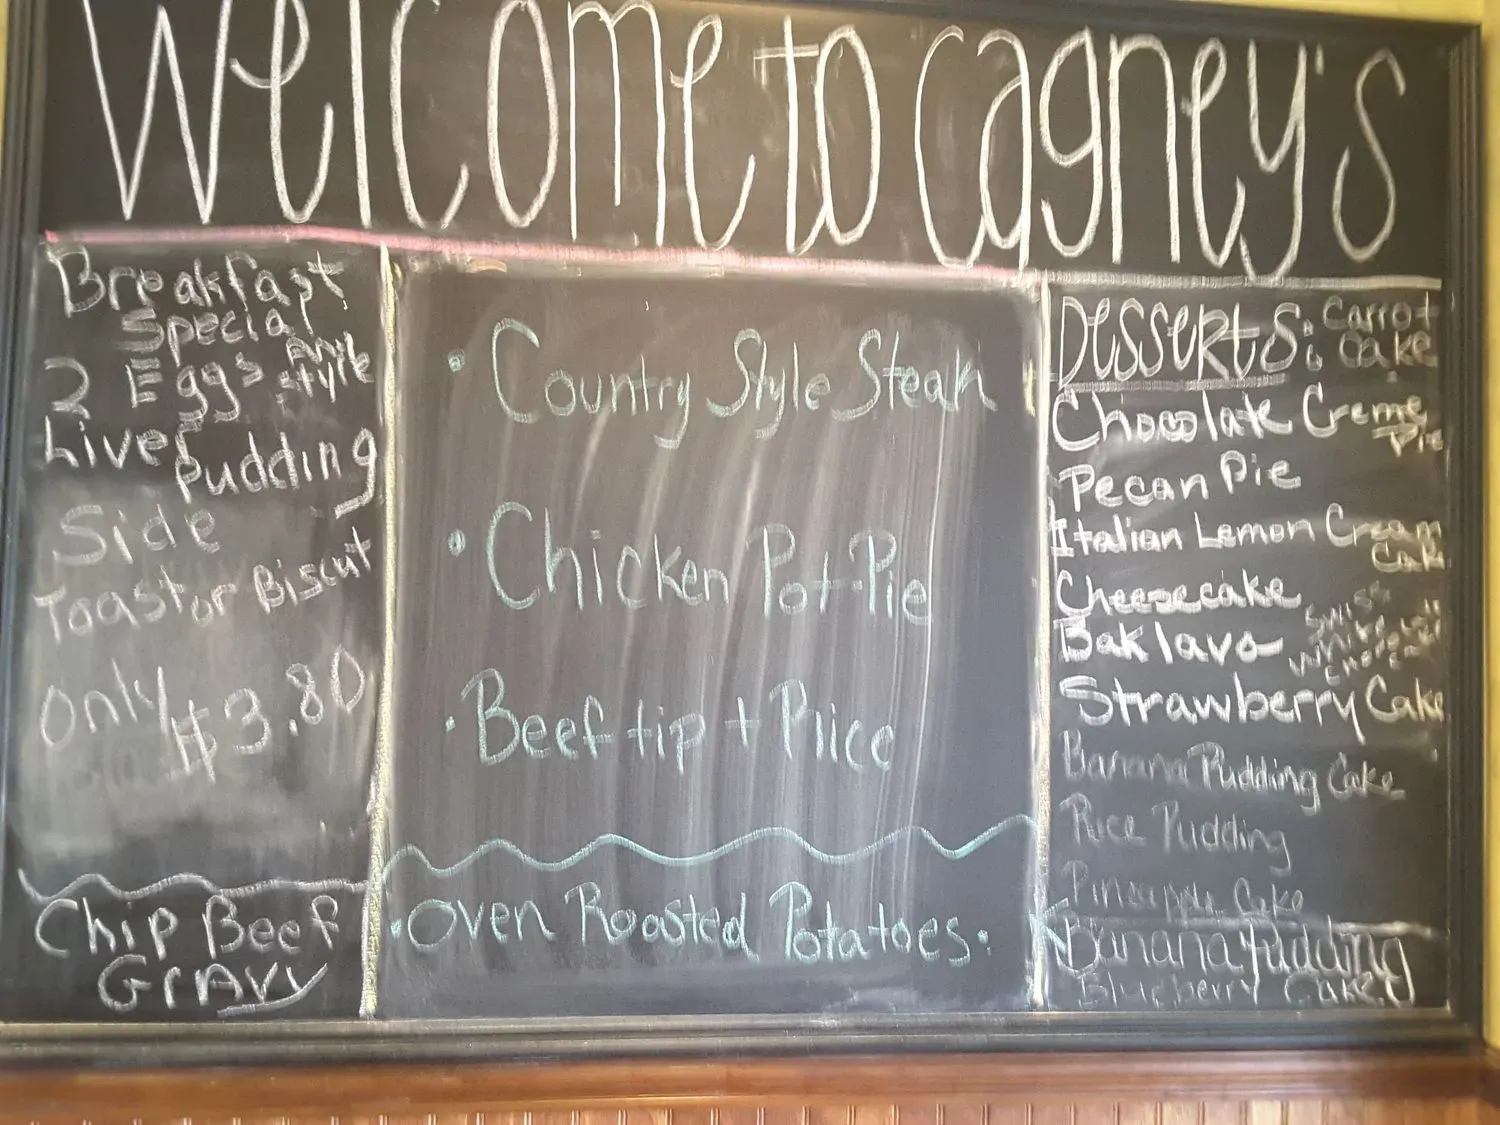 Welcome to Cagney's
Breakfast
Special
2 Eggs Any
style
Liver
pudding
Side
Toast or Biscuit
Only $3.80
Chip Beef
Gravy
• Country Style Steak
• Chicken Pot-Pie
• Beef tip + Rice
• Oven Roasted Potatoes •
Desserts: Carrot
Cake
Chocolate Creme
Pie
Pecan Pie
Italian Lemon Cream
Cake
Cheesecake
Baklava
Swiss
White
Chocolate
Strawberry Cake
Banana Pudding Cake
Rice Pudding
Pineapple Cake
Banana Pudding
Blueberry Cake